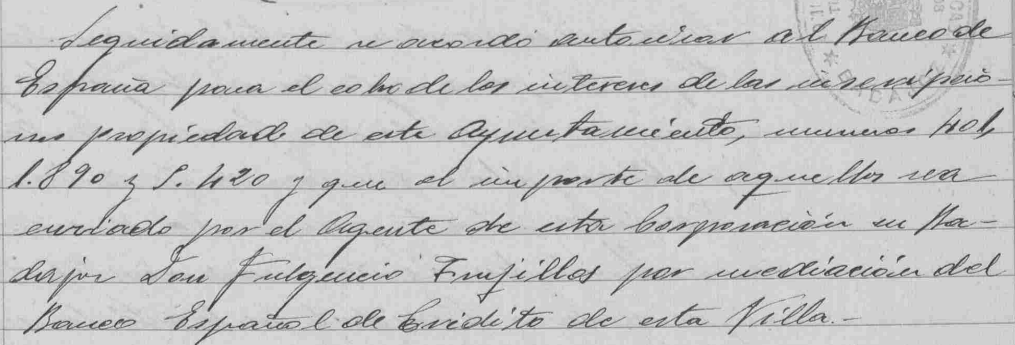 Seguidamente se acordó autorizar al Banco de
España para el cobro de los intereses de las inscripcio-
nes propiedad de este Ayuntamiento, numeros 401,
1.890 y 5.420 y que el importe de aquellos sea
enviado por el Agente de esta Corporación en Ba-
dajoz Don Fulgencio Trujillos por mediación del
Banco Español de Crédito de esta Villa.-